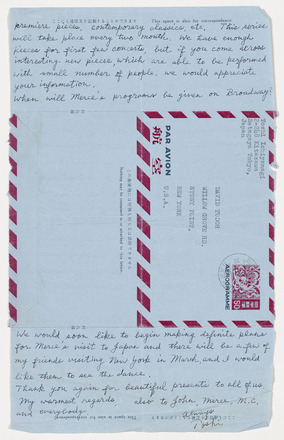 この所にも通信文を記載できます　This space is also for correspondence
premiere pieces, contemporary classics, etc. This series
will take place every two month. We have enough
pieces for first few concerts, but, if you come across
interesting new pieces, which are able to be performed
with small number of people, we would appreciate
your information.
When will Merce's programs be given on Broadway?
Toshi Ichiyanagi
Setagaya Tokyo,
Japan
PAR AVION
航空
AEROGRAMME
50
DAVID TUDOR
WILLOW GROVE RD.
STONY POINT,
NEW YORK
U.S.A.
Nothing may be contained in or attached to this letter.
We would soon like to begin making definite plans
for Merce's visit to Japan and there will be a few of
my friends visiting New York in March and I would
like them to see the dance.
Thank you again for beautiful presents to all of us.
My warmest regards also to John, Merce, M.C.
and everybody.
Always
Toshi
This space is also for correspondence